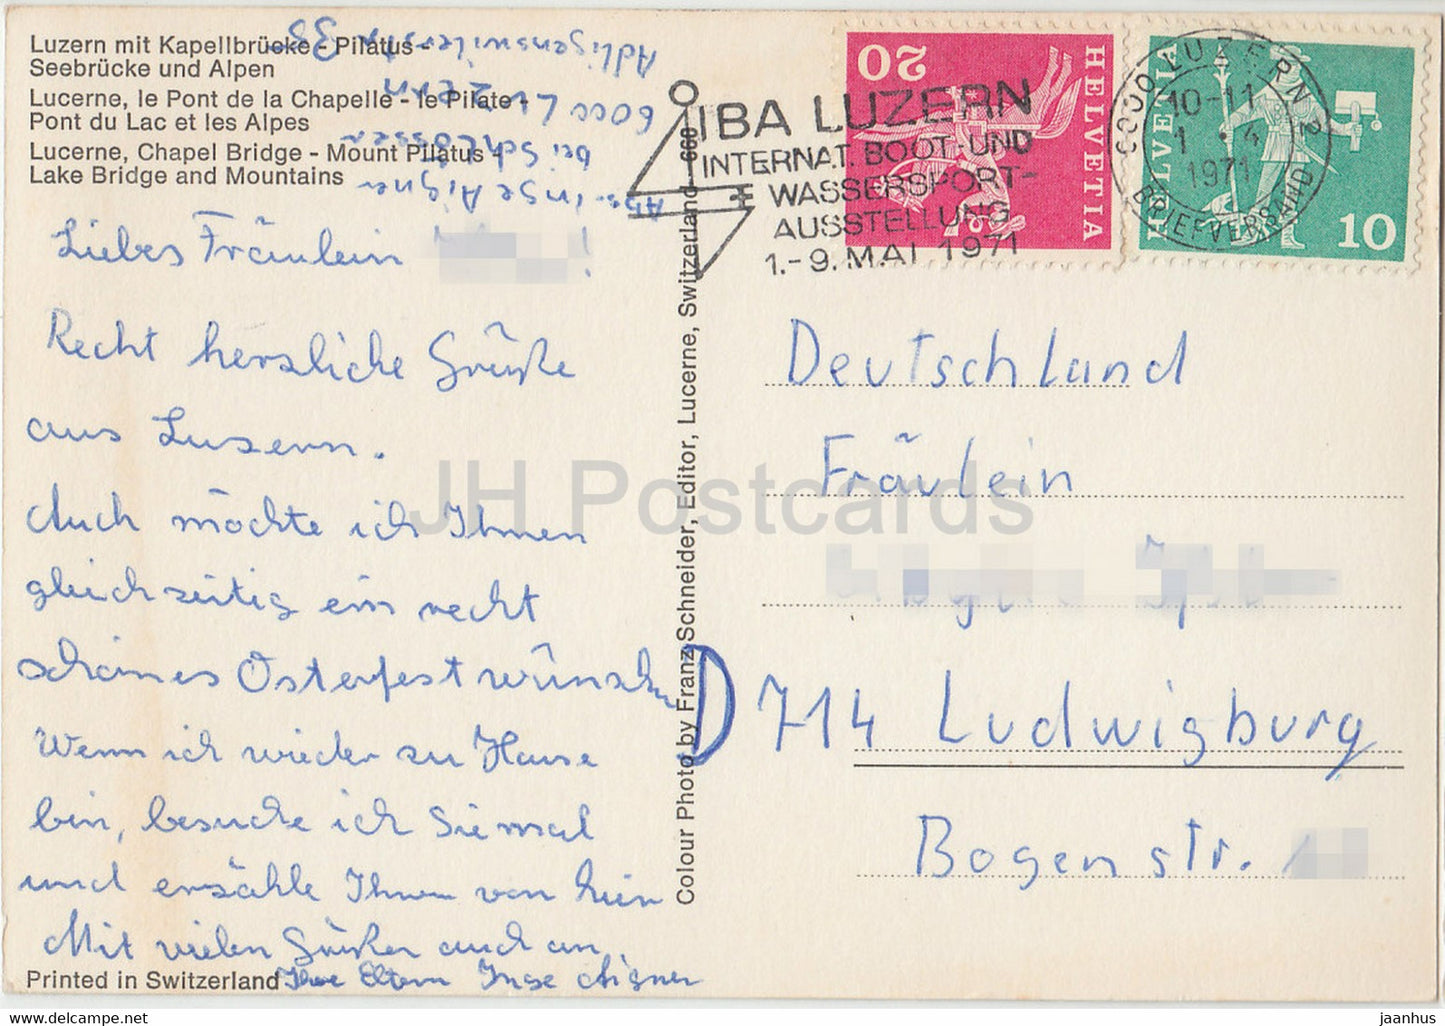 Luzern mit Kapellbrücke - Pilatus -
Seebrücke und Alpen
Lucerne, le Pont de la Chapelle - le Pilate -
Pont du Lac et les Alpes
Lucerne, Chapel Bridge - Mount Pilatus -
Lake Bridge and Mountains
Abs. Inge Aigner
bei Schlosser
6000 Luzern
Adligenswilerstr. 33
Liebes Fräulein
Recht herzliche Grüße
aus Luzern.
Auch möchte ich Ihnen
gleichzeitig ein recht
schönes Osterfest wünschen
Wenn ich wieder zu Hause
bin, besuche ich Sie mal
und erzähle Ihnen von hier
Mit vielen Grüßen auch an
Ihre Eltern Inge Aigner
Printed in Switzerland
Colour Photo by Franz Schneider, Editor, Lucerne, Switzerland 666
IBA LUZERN
INTERNAT. BOOT- UND
WASSERSPORT-
AUSSTELLUNG
1.-9. MAI 1971
20
HELVETIA
HELVETIA
10
6000 LUZERN 2
10-11
1 . 4
1971
BRIEFVERSAND
Deutschland
Fräulein
D 714 Ludwigburg
Bogenstr.
JH Postcards
www.delcampe.net
jaanhus